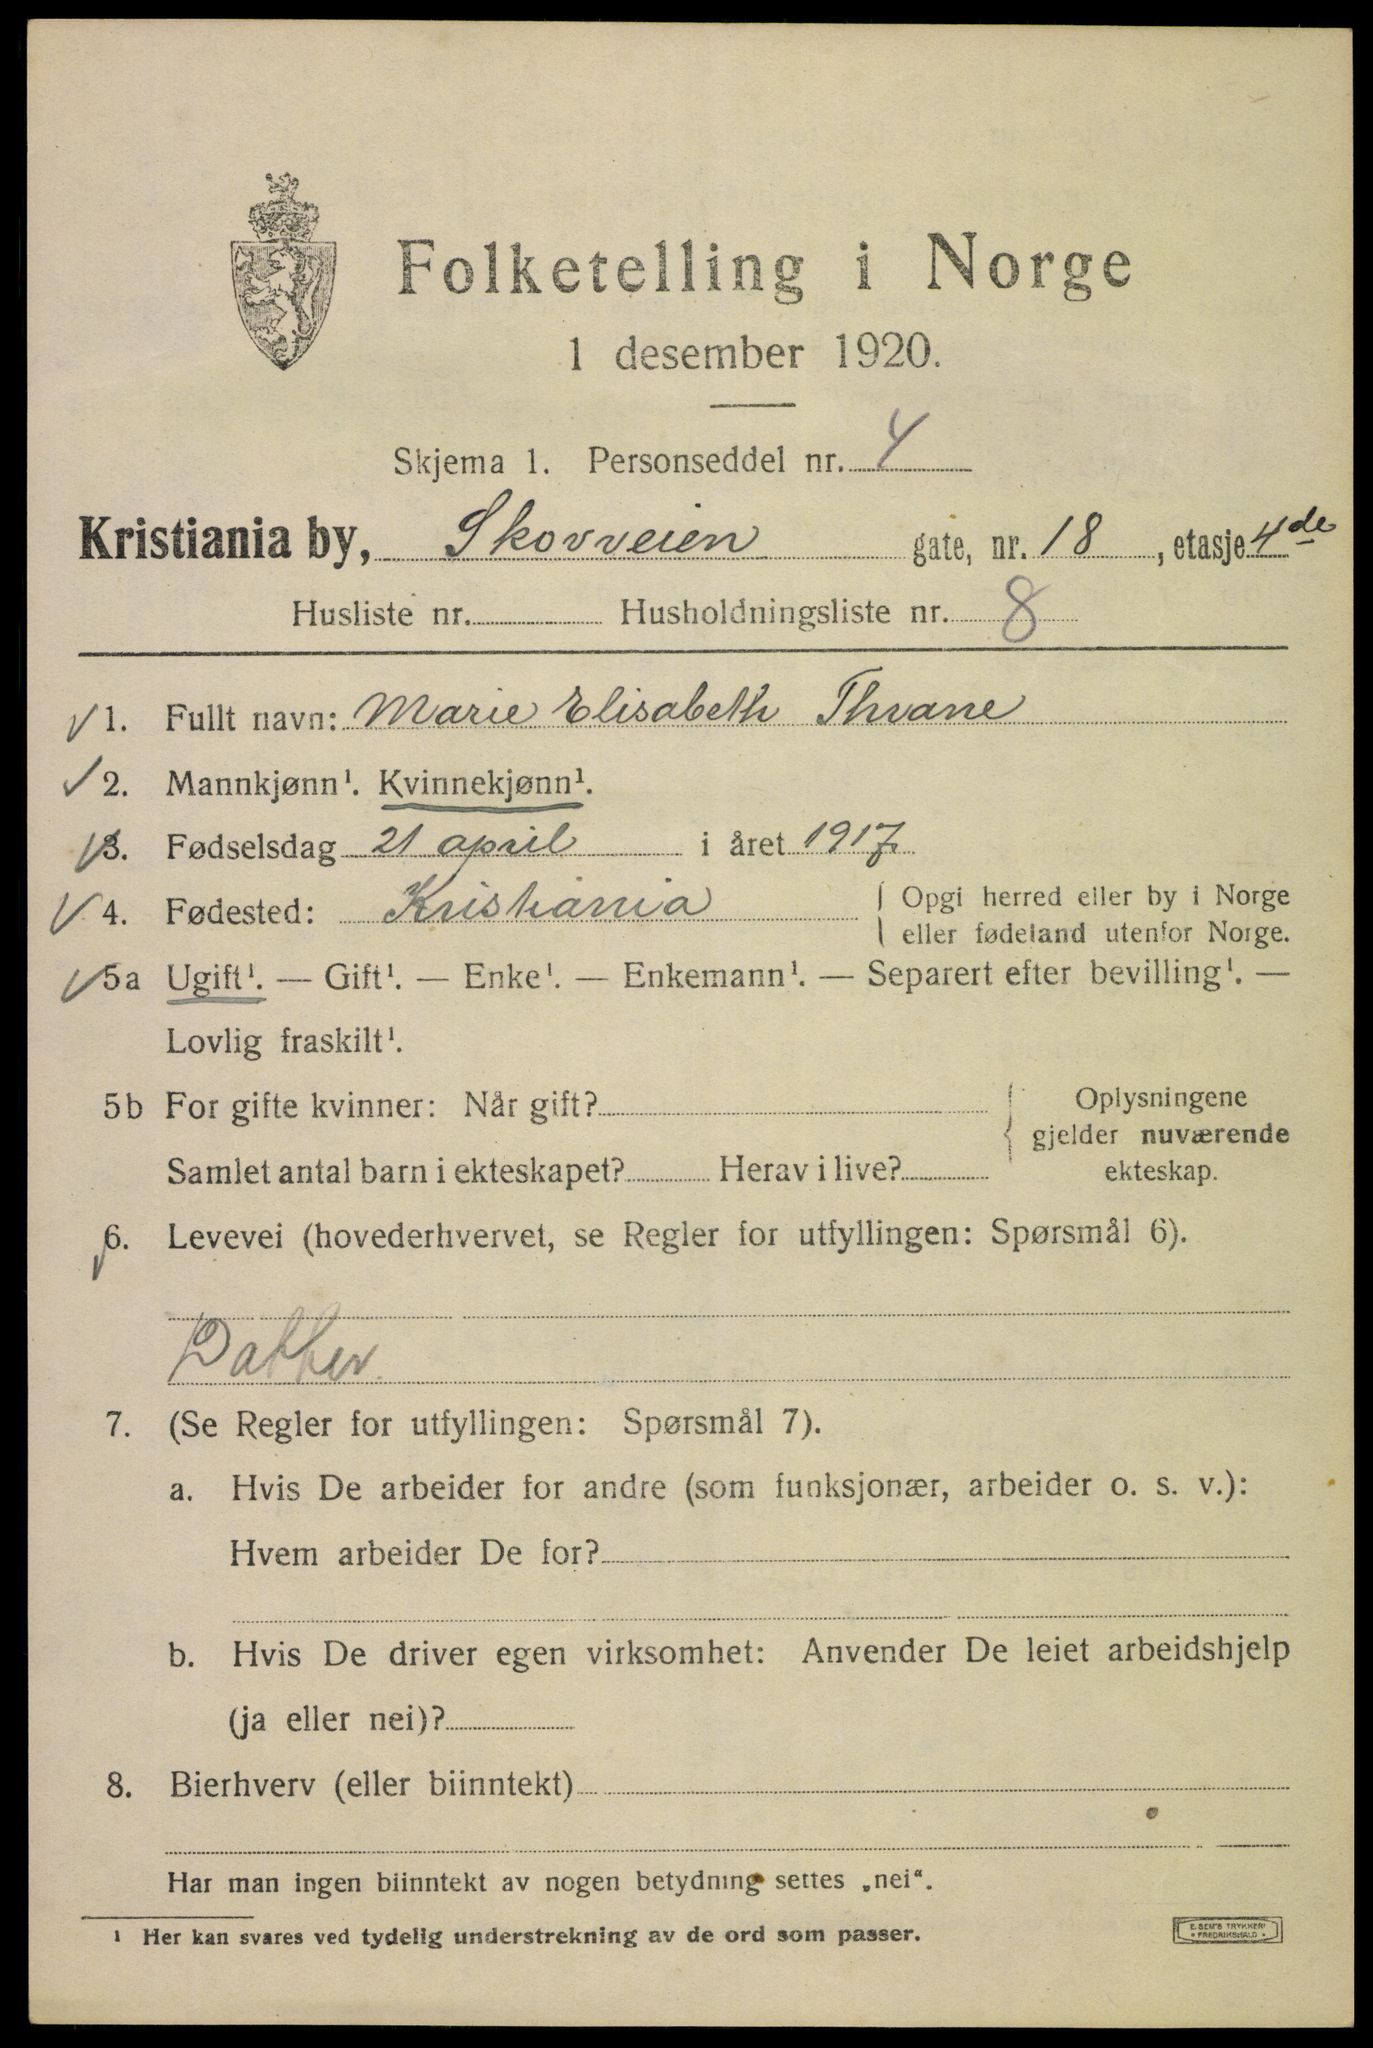 Folketelling i Norge
1 desember 1920.
Skjema 1. Personseddel nr. 4
Kristiania by, Skovveien gate, nr. 18, etasje 4de
Husliste nr. Husholdningsliste nr. 8
1. Fullt navn: Marie Elisabeth Thrane
2. Mannkjønn¹. Kvinnekjønn¹.
3. Fødselsdag 21 april i året 1917
4. Fødested: Kristiania { Opgi herred eller by i Norge
eller fødeland utenfor Norge.
5a Ugift¹. — Gift¹. — Enke¹. — Enkemann¹. — Separert efter bevilling¹. —
Lovlig fraskilt¹.
5b For gifte kvinner: Når gift? { Oplysningene
gjelder nuværende
Samlet antal barn i ekteskapet? Herav i live? ekteskap.
6. Levevei (hovederhvervet, se Regler for utfyllingen: Spørsmål 6).
Datter
7. (Se Regler for utfyllingen: Spørsmål 7).
a. Hvis De arbeider for andre (som funksjonær, arbeider o. s. v.):
Hvem arbeider De for?
b. Hvis De driver egen virksomhet: Anvender De leiet arbeidshjelp
(ja eller nei)?
8. Bierhverv (eller biinntekt)
Har man ingen biinntekt av nogen betydning settes „nei“.
¹ Her kan svares ved tydelig understrekning av de ord som passer.
E. SEM'S TRYKKERI
FREDRIKSHALD